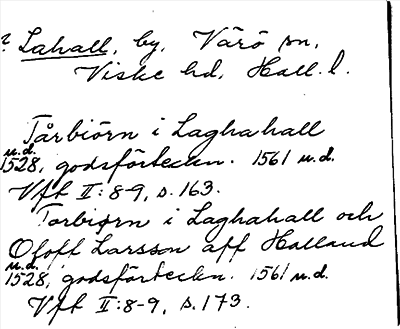 ? Lahall, by, Värö sn,
Viske hd, Hall. l.
Tårbiörn i Laghahall
u.d.
1528, godsförteckn. 1561 u.d.
Vft II:8-9, s. 163.
Torbiørn i Laghahall och
Oloff Larsson aff Halland
u.d.
1528, godsförteckn. 1561 u.d.
Vft II:8-9, s. 173.